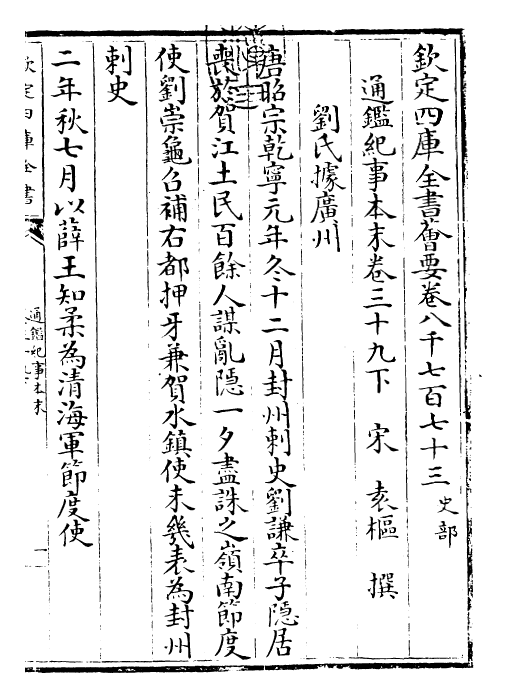 欽定四庫全書薈要卷八千七百七十三 史部
通鑑紀事本末卷三十九下 宋 袁樞 撰
劉氏據廣州
唐昭宗乾寧元年冬十二月封州刺史劉謙卒子隱居
喪於賀江土民百餘人謀亂隱一夕盡誅之嶺南節度
使劉崇龜召補右都押牙兼賀水鎮使未幾表為封州
刺史
二年秋七月以薛王知柔為清海軍節度使
欽定四庫全書
通鑑紀事本末
一